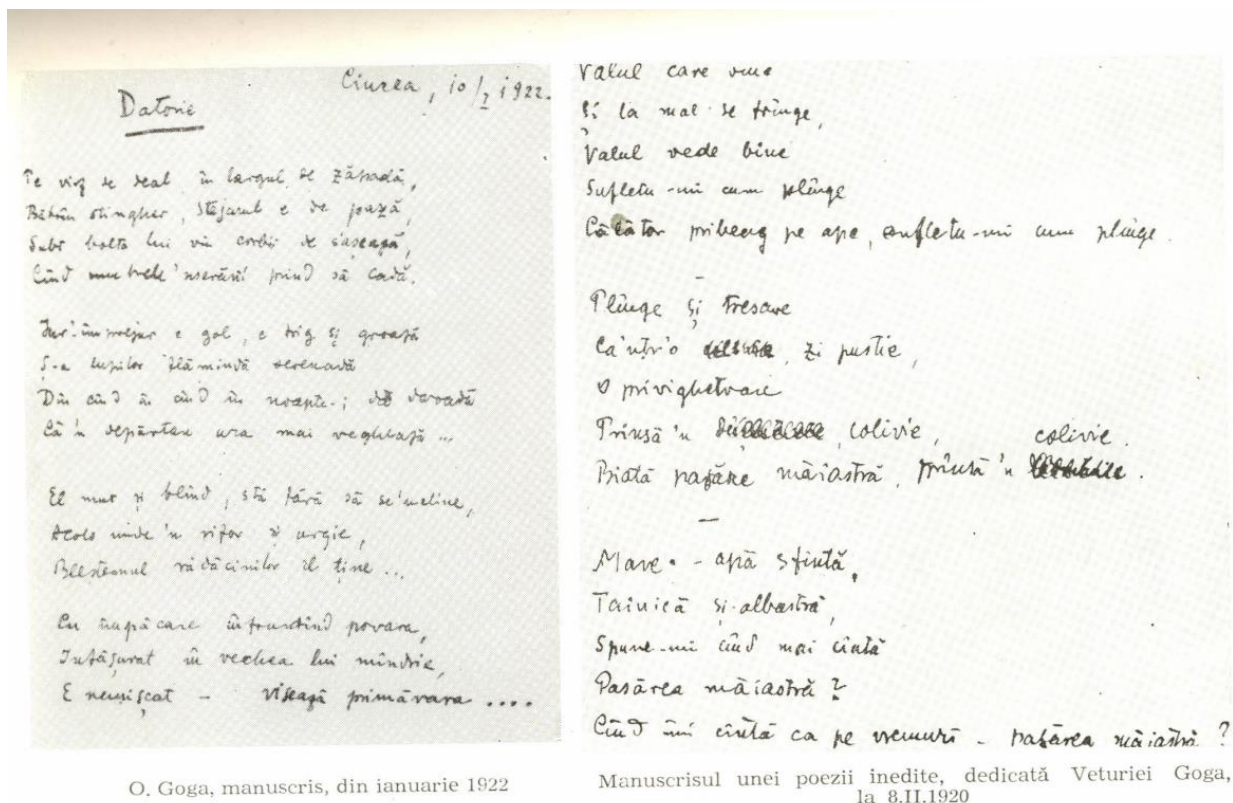 Ciurea, 10/I 1922.
Datorie
Pe vîrf de deal în largul de zăpadă,
Bătrîn stingher, stejarul e de pază,
Subt bolta lui vin corbii de s'aşează,
Cînd umbrele 'nserării prind să cadă.
Jur-împrejur e gol, e frig şi groază
Ş-a lupilor flămîndă serenadă
Din cînd în cînd în noapte-i dă dovadă
Că 'n depărtări ura mai veghează ...
El mut şi blînd, stă fără să se'ncline,
Acolo unde 'n vifor şi urgie,
Blestemul rădăcinilor îl ţine ...
Cu împăcare înfruntînd povara,
Înfăşurat în vechea lui mîndrie,
E nemişcat - visează primăvara ....
O. Goga, manuscris, din ianuarie 1922
Valul care vine
Şi la mal se frînge,
Valul vede bine
Sufletu-mi cum plînge
Călător pribeag pe ape, sufletu-mi cum plînge.
Plînge şi tresare
Ca'ntr'o zi pustie,
O privighetoare
Prinsă'n colivie,
Biată pasăre măiastră, prinsă'n colivie.
Mare - apă sfîntă,
Tainică şi albastră,
Spune-mi cînd mai cîntă
Pasărea măiastră?
Cînd îmi cîntă ca pe vremuri - pasărea măiastră?
Manuscrisul unei poezii inedite, dedicată Veturiei Goga,
la 8.II.1920